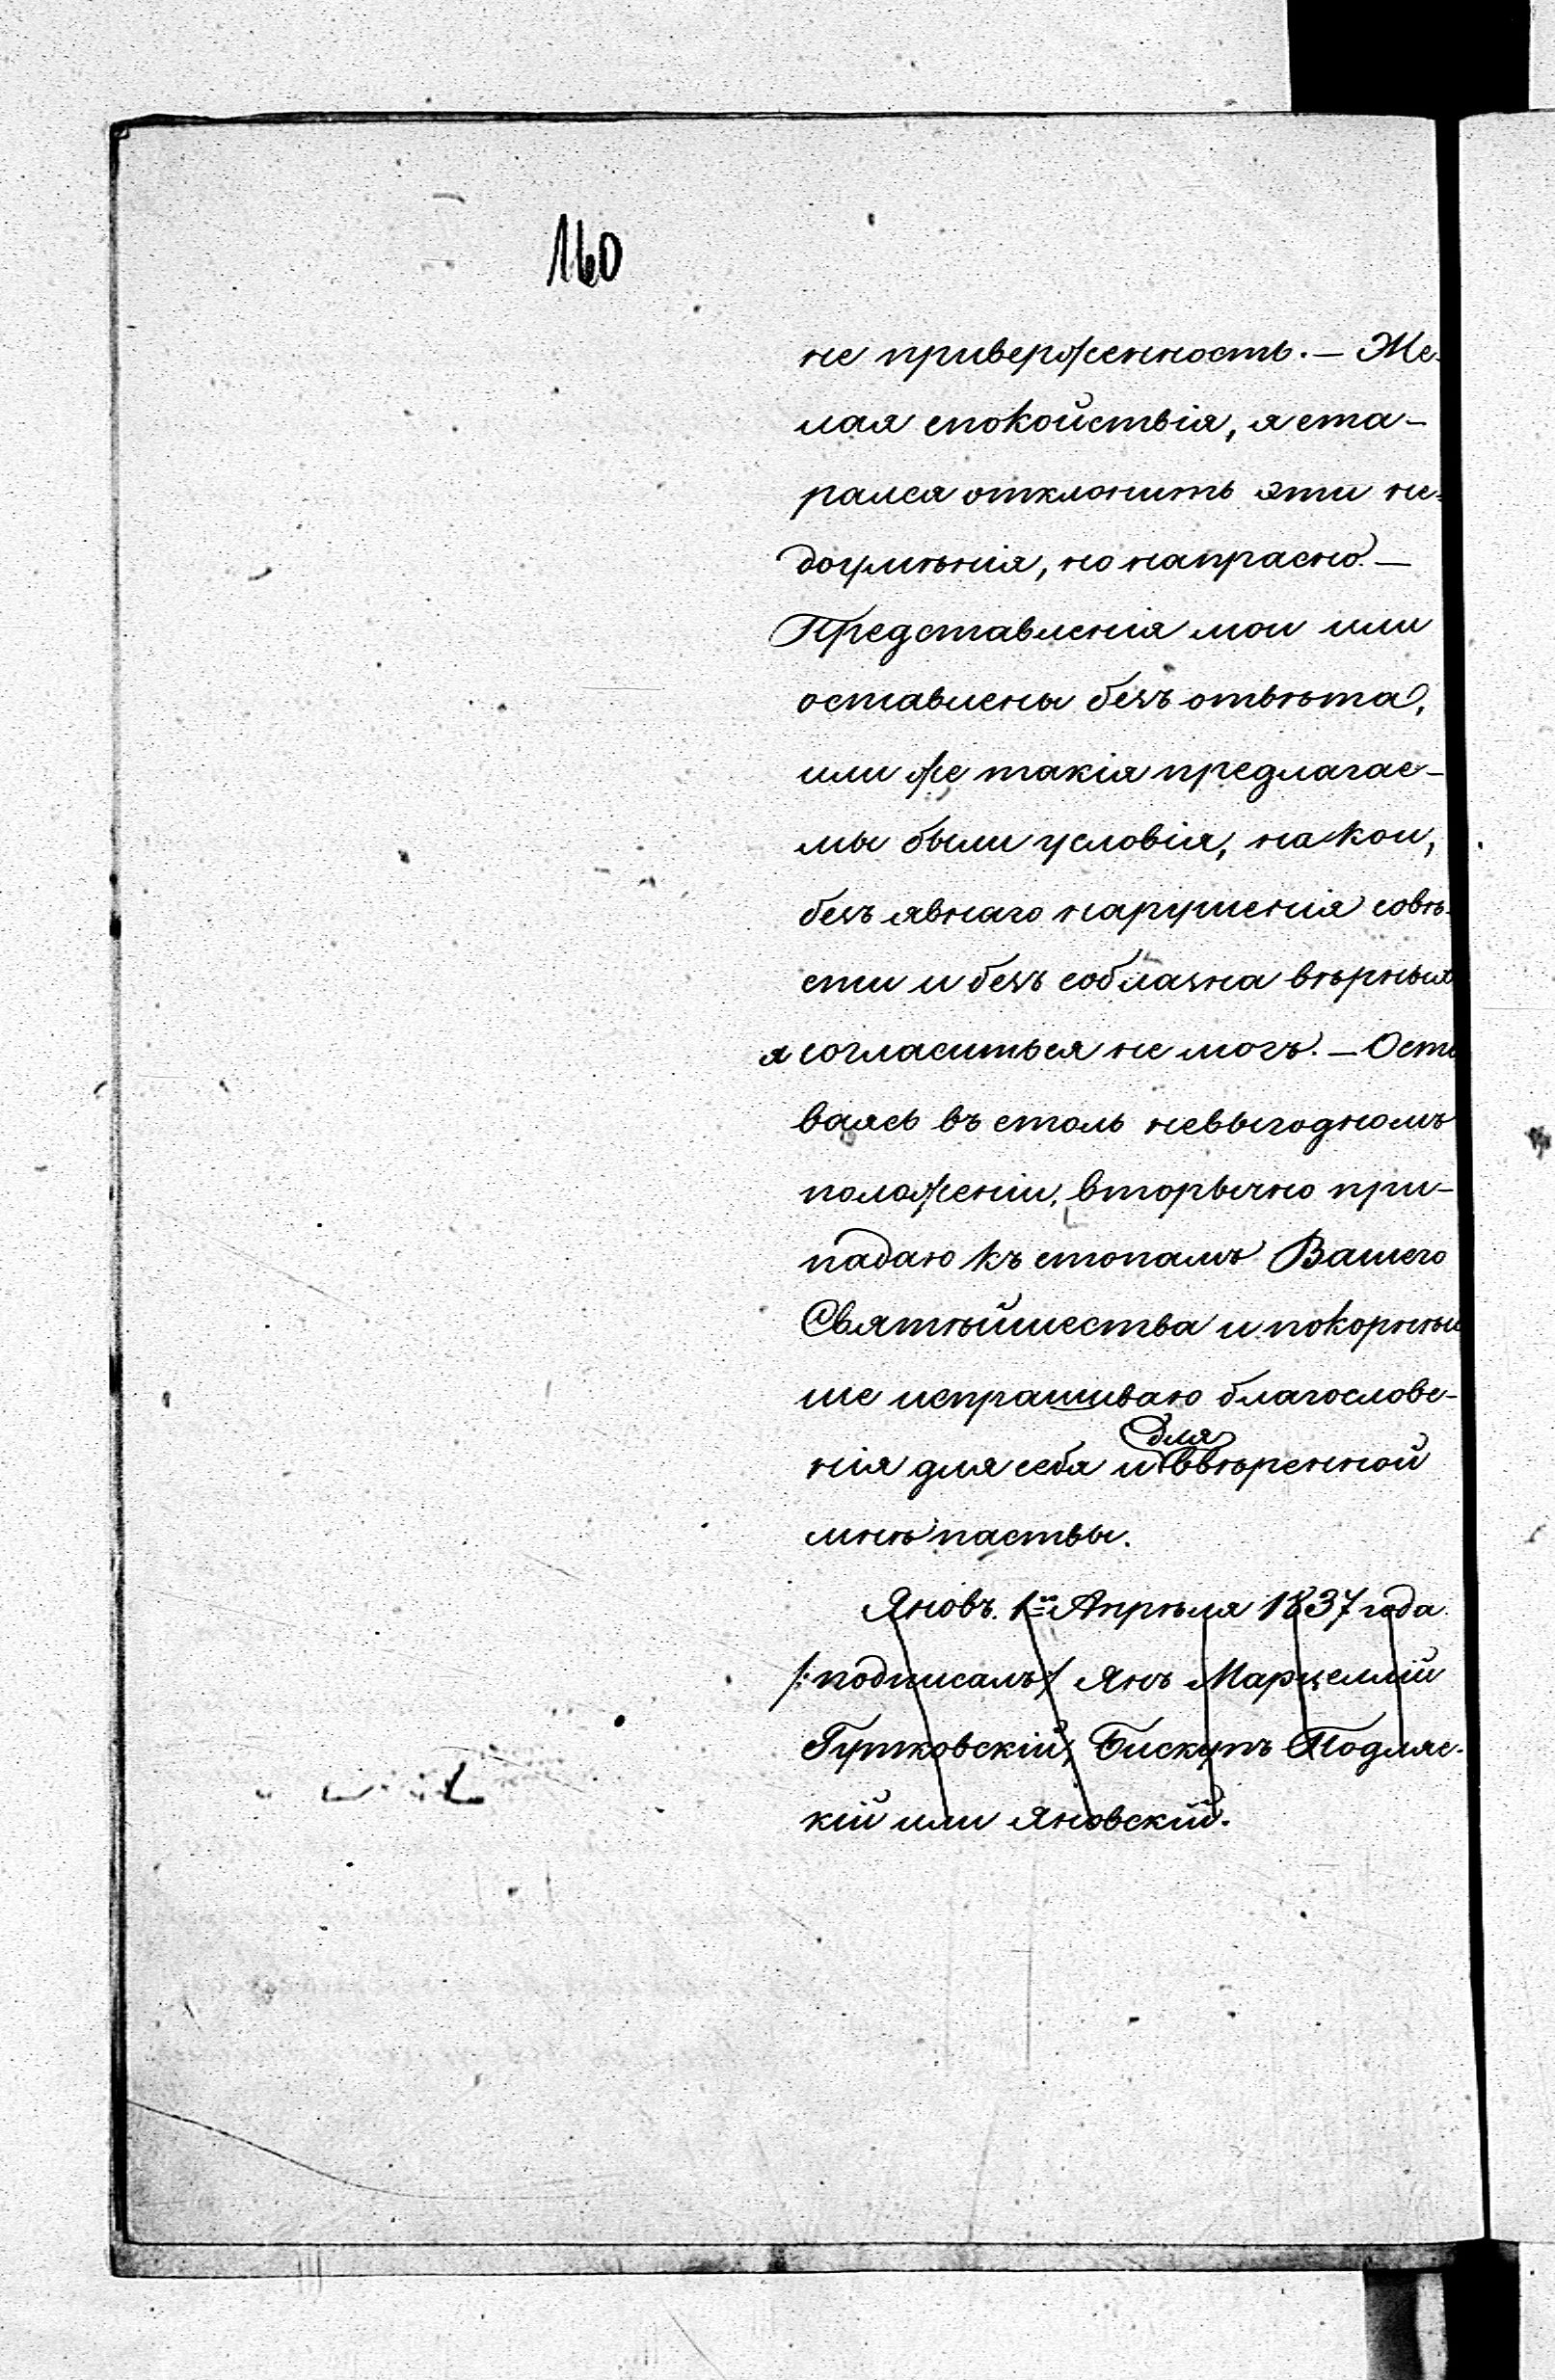 160
не приверженность. — Же-
лая спокойствія, я ста-
рался отклонить эти не-
доумѣнія, но напрасно. —
Представленія мои или
оставлены безъ отвѣта,
или же такія предлагае-
мы были условія, на кои,
безъ явнаго нарушенія совѣ-
сти и безъ соблазна вѣрныхъ
я согласиться не могъ. — Оста
ваясь въ столь невыгодномъ
положеніи, вторично при-
падаю къ стопамъ Вашего
Святѣйшества и покорнѣй
ше испрашиваю благослове-
для
нія для себя и ввѣренной
мнѣ паствы.
Яновъ. 1го Апрѣля 1837 года
/: подписалъ/ Янъ Марцеллій
Гутковскій, Бискупъ Подляс-
кій или Яновскій.